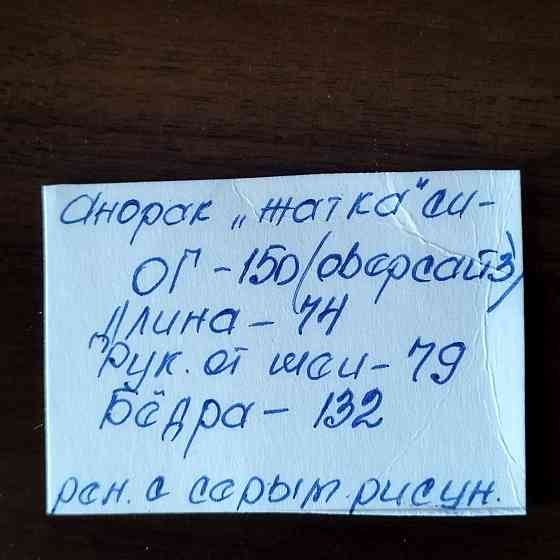 Анорак „жатка" си-
ОГ - 150 (оверсайз)
Длина - 74
Рук. от шеи - 79
Бёдра - 132
рен. с серым рисун.